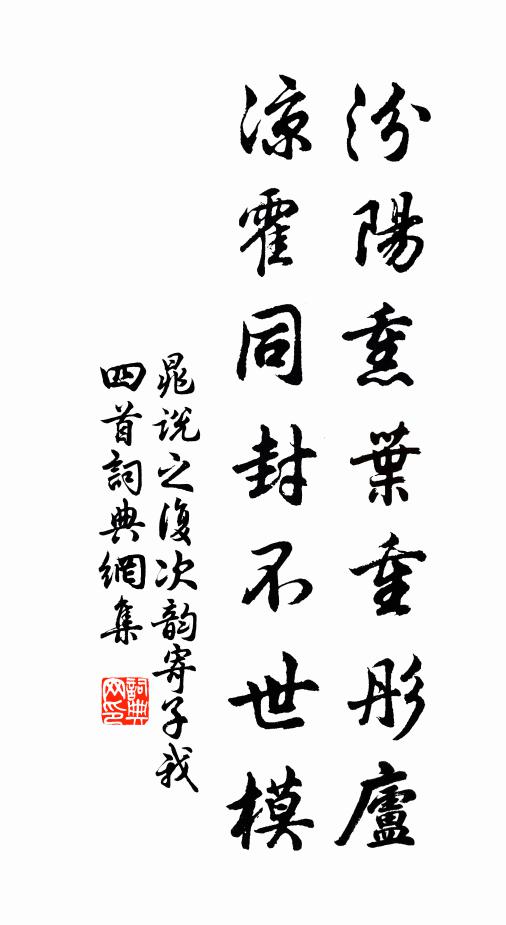 汾陽熏葉重彤廬
凉霍同封不世模
晁説之復次韵寄子我
四首詞典網集
詞典
网印